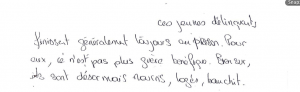 ces jeunes délinquants
finissent généralement toujours en prison. Pour
eux, ce n'est pas plus guère bénéfique. Pour eux,
ils sont désormais nourris, logés, banchit.